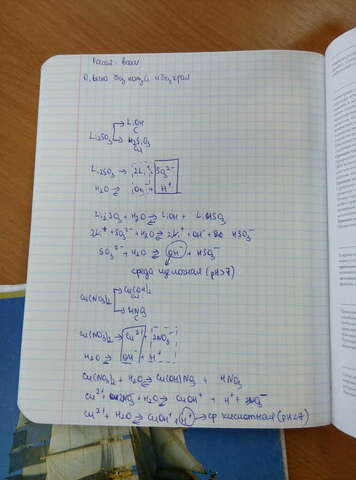 Li₂SO₃ → LiOH
C
→ H₂SO₃
Сл
Li₂SO₃ → 2Li⁺ SO₃²⁻
H₂O ⇄ OH⁻ H⁺
Li₂SO₃ + H₂O ⇄ LiOH + LiHSO₃
2Li⁺ + SO₃²⁻ + H₂O ⇄ 2Li⁺ + OH⁻ + HSO₃⁻
SO₃²⁻ + H₂O ⇄ OH⁻ + HSO₃⁻
среда щелочная (pH>7)
Cu(NO₃)₂ → Cu(OH)₂
Сл
→ HNO₃
C
Cu(NO₃)₂ → Cu²⁺ 2NO₃⁻
H₂O ⇄ OH⁻ H⁺
Cu(NO₃)₂ + H₂O ⇄ Cu(OH)NO₃ + HNO₃
Cu²⁺ 2NO₃⁻ + H₂O ⇄ CuOH⁺ + H⁺ + 2NO₃⁻
Cu²⁺ + H₂O ⇄ CuOH⁺ + H⁺ → ср кислотная (pH<7)